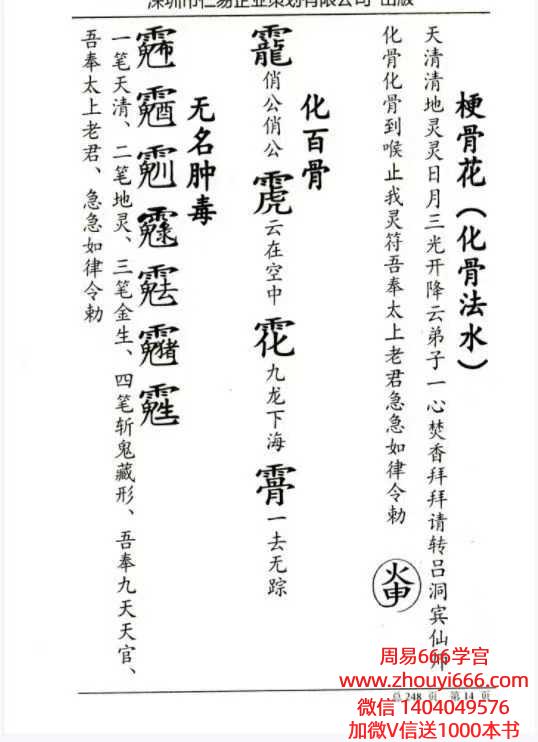 深圳市仁易企业策划有限公司 出版
梗骨花(化骨法水)
天清清地灵灵日月三光开降云弟子一心焚香拜拜请转吕洞宾仙师
化骨化骨到喉止我灵符吾奉太上老君急急如律令勅
化百骨
俏公俏公 云在空中 九龙下海 一去无踪
无名肿毒
一笔天清、二笔地灵、三笔金生、四笔斩鬼藏形、吾奉九天天官、
吾奉太上老君、急急如律令勅
周易666学宫
www.zhouyi666.com
总 248 页 第 14 页
微信 1404049576
加微V信送1000本书